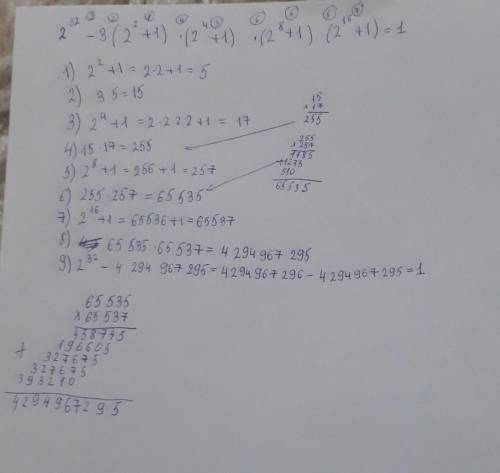 2³² - 3(2² + 1) · (2⁴ + 1) · (2⁸ + 1) (2¹⁶ + 1) = 1
1) 2² + 1 = 2·2 + 1 = 5
2) 3 5 = 15
3) 2⁴ + 1 = 2·2 2 2 + 1 = 17
4) 15 · 17 = 255
5) 2⁸ + 1 = 256 + 1 = 257
6) 255 · 257 = 65 535
7) 2¹⁶ + 1 = 65536 + 1 = 65537
8) 65 535 · 65 537 = 4 294 967 295
9) 2³² - 4 294 967 295 = 4294967296 - 4294967295 = 1
15
x 17
255
255
x 257
1785
+ 1275
510
65535
65535
x 65537
458745
+ 196605
327675
327675
393210
4294967295